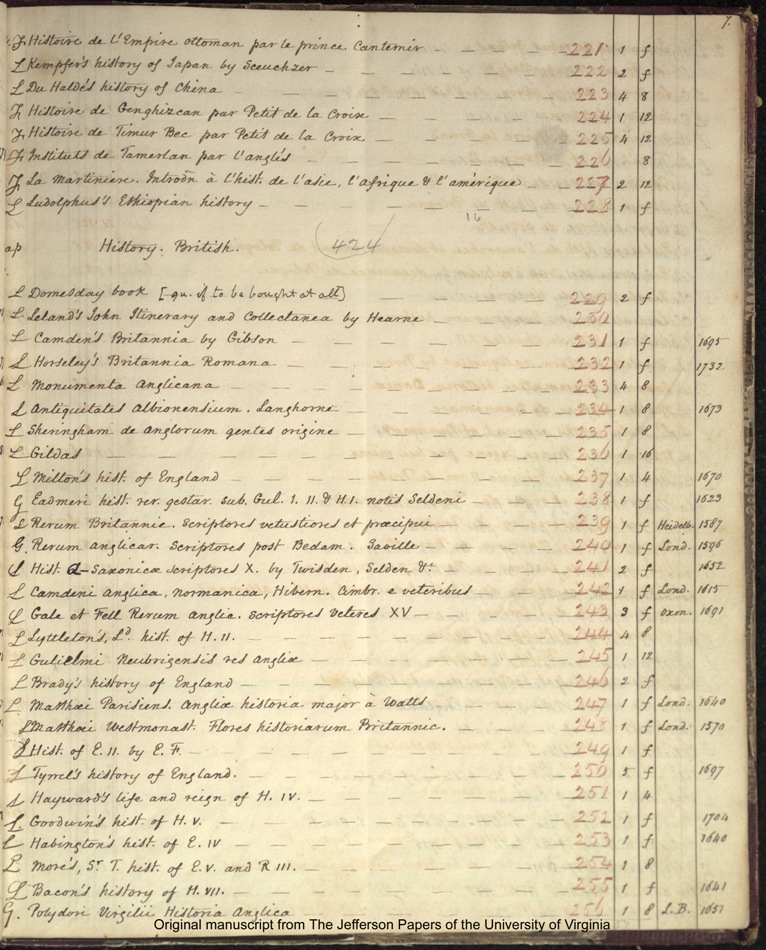 7.
F Histoire de l'Empire ottoman par le prince Cantemir 221 1 f
L Kempfer's history of Japan by Sceuchzer 222 2 f
L Du Halde's history of China 223 4 8
F Histoire de Genghizcan par Petit de la Croix 224 1 12
F Histoire de Timur Bec par Petit de la Croix 225 4 12
F Instituts de Tamerlan par l'anglés 226 8
F La Martiniere. Introdn à l'hist. de l'asie, l'afrique & l'amérique 227 2 12
L Ludolphus's Ethiopian history 228 1 f
16
ap History. British. 424
L Domesday book [qu. if to be bought at all] 229 2 f
L Leland's John Itinerary and Collectanea by Hearne 230
L Camden's Britannia by Gibson 231 1 f 1695
L Horseley's Britannia Romana 232 1 f 1732
L Monumenta Anglicana 233 4 8
L Antiquitates Albionensium. Langhorne 234 1 8 1673
L Sheringham de Anglorum gentes origine 235 1 8
L Gildas 236 1 16
L Milton's hist. of England 237 1 4 1670
G Eadmeri hist. rer. gestar. sub. Gul. 1. 11. & H.1. notis Seldeni 238 1 f 1623
L Rerum Britannic. Scriptores vetustiores et præcipui 239 1 f Heidelb. 1587
G. Rerum anglicar. Scriptores post Bedam. Saville 240 1 f Lond. 1596
L Hist. a-Saxonicæ scriptores X. by Twisden, Selden &c 241 2 f 1652
L Camdeni Anglica, Normanica, Hibern. Cambr. e veteribus 242 1 f Lond. 1615
L Gale et Fell Rerum Anglic. scriptores veteres XV 243 3 f Oxon. 1691
L Lyttleton's, Ld. hist. of H. 11. 244 4 8
L Gulielmi Neubrigensis res anglicæ 245 1 12
L Brady's history of England 246 2 f
L Matthæi Parisiens. Angliæ historia major à Watts 247 1 f Lond. 1640
L Matthæi Westmonast. Flores historiarum Britannic. 248 1 f Lond. 1570
L Hist. of E. 11. by E. F. 249 1 f
L Tyrrel's history of England. 250 5 f 1697
L Hayward's life and reign of H. IV. 251 1 4
L Goodwin's hist. of H. V. 252 1 f 1704
L Habington's hist. of E. IV 253 1 f 1640
L More's, Sr T. hist. of E.V. and R III. 254 1 8
L Bacon's history of H. VII. 255 1 f 1641
G. Polydori Virgilii Historia Anglica 256 1 8 L.B. 1651
Original manuscript from The Jefferson Papers of the University of Virginia